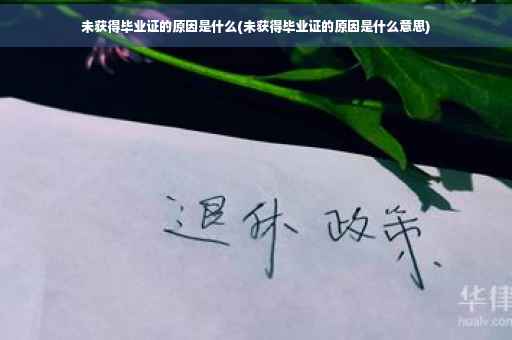 未获得毕业证的原因是什么(未获得毕业证的原因是什么意思)
退休 政策
华律
hualv.com